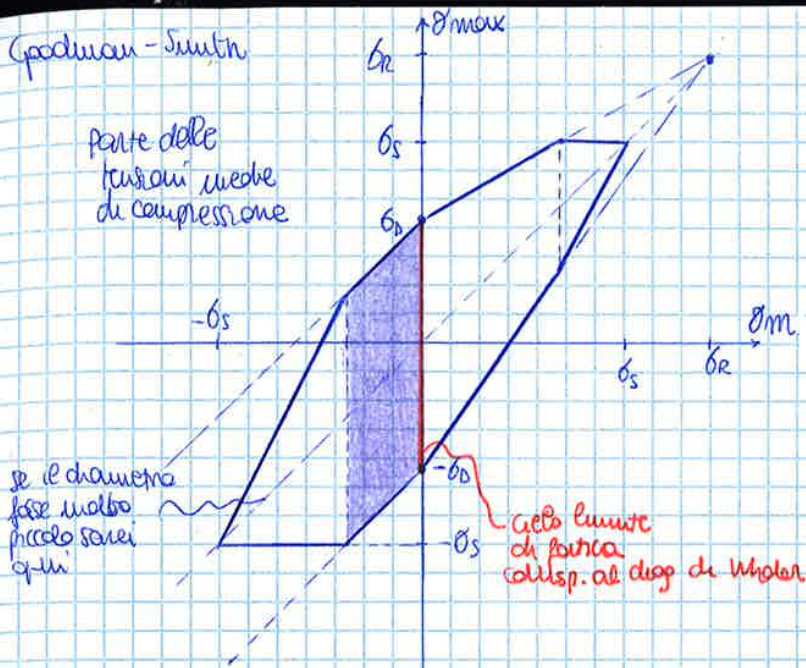 Goodman-Smith
σmax
σR
Parte delle
tensioni medie
di compressione
σS
σD
-σS
σm
σS
σR
se il diametro
fosse molto
piccolo sarei
qui
-σD
-σS
ciclo limite
di fatica
corrisp. al diag di Wholer